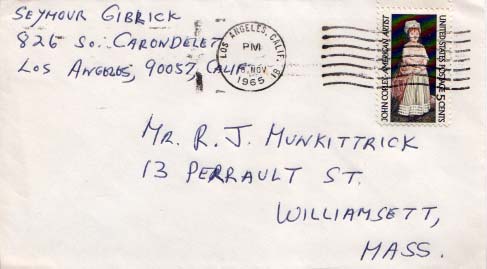 SEYMOUR GIBRICK
826 SO. CARONDELET
LOS ANGELES, 90057, CALIF.
LOS ANGELES, CALIF.
PM
NOV
1965
JOHN COPLEY·AMERICAN ARTIST
UNITED STATES POSTAGE 5 CENTS
MR. R. J. MUNKITTRICK
13 PERRAULT ST.
WILLIAMSETT,
MASS.